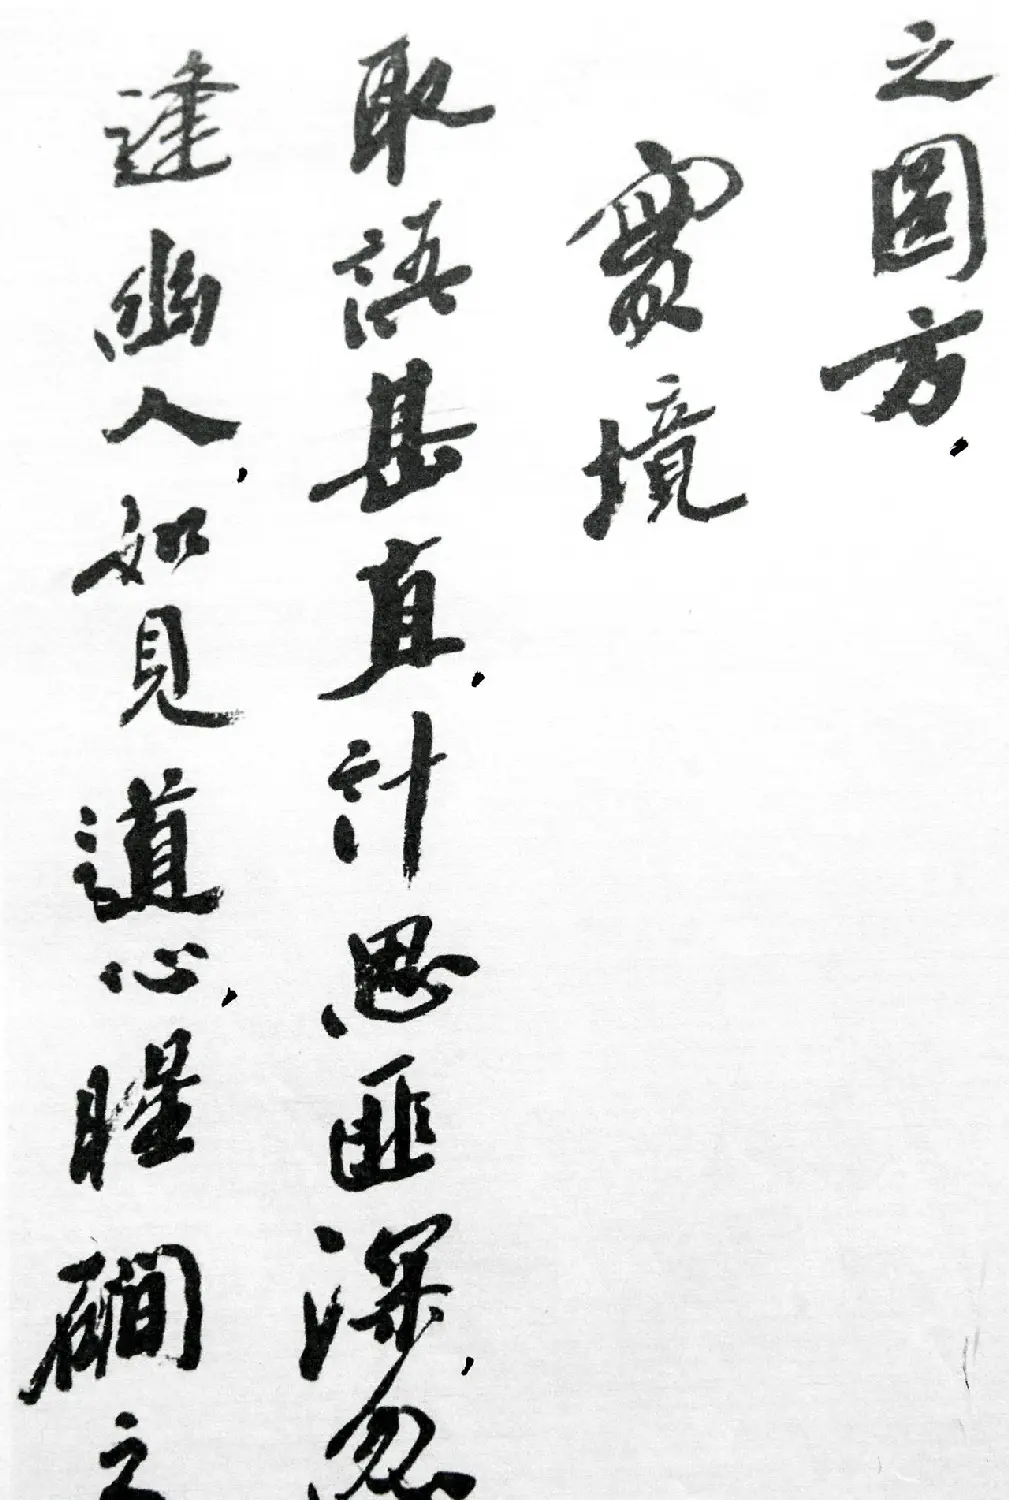 之圓方，
實境
取語甚直，計思匪深，忽
逢幽人，如見道心，磵之